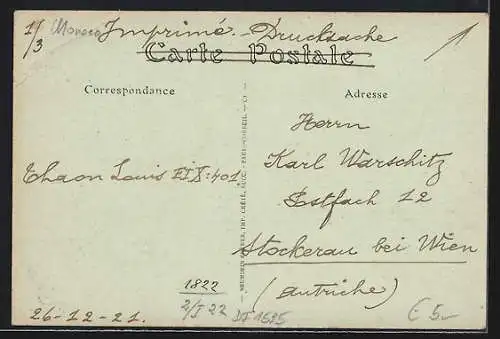 1/3 Monaco Imprimé - Drucksache 1
Carte Postale
Correspondance
Adresse
Herrn
Karl Warschitz
Postfach 12
Stockerau bei Wien
(Autriche)
Louis
1822
2/I 22
26-12-21.
€ 5.-